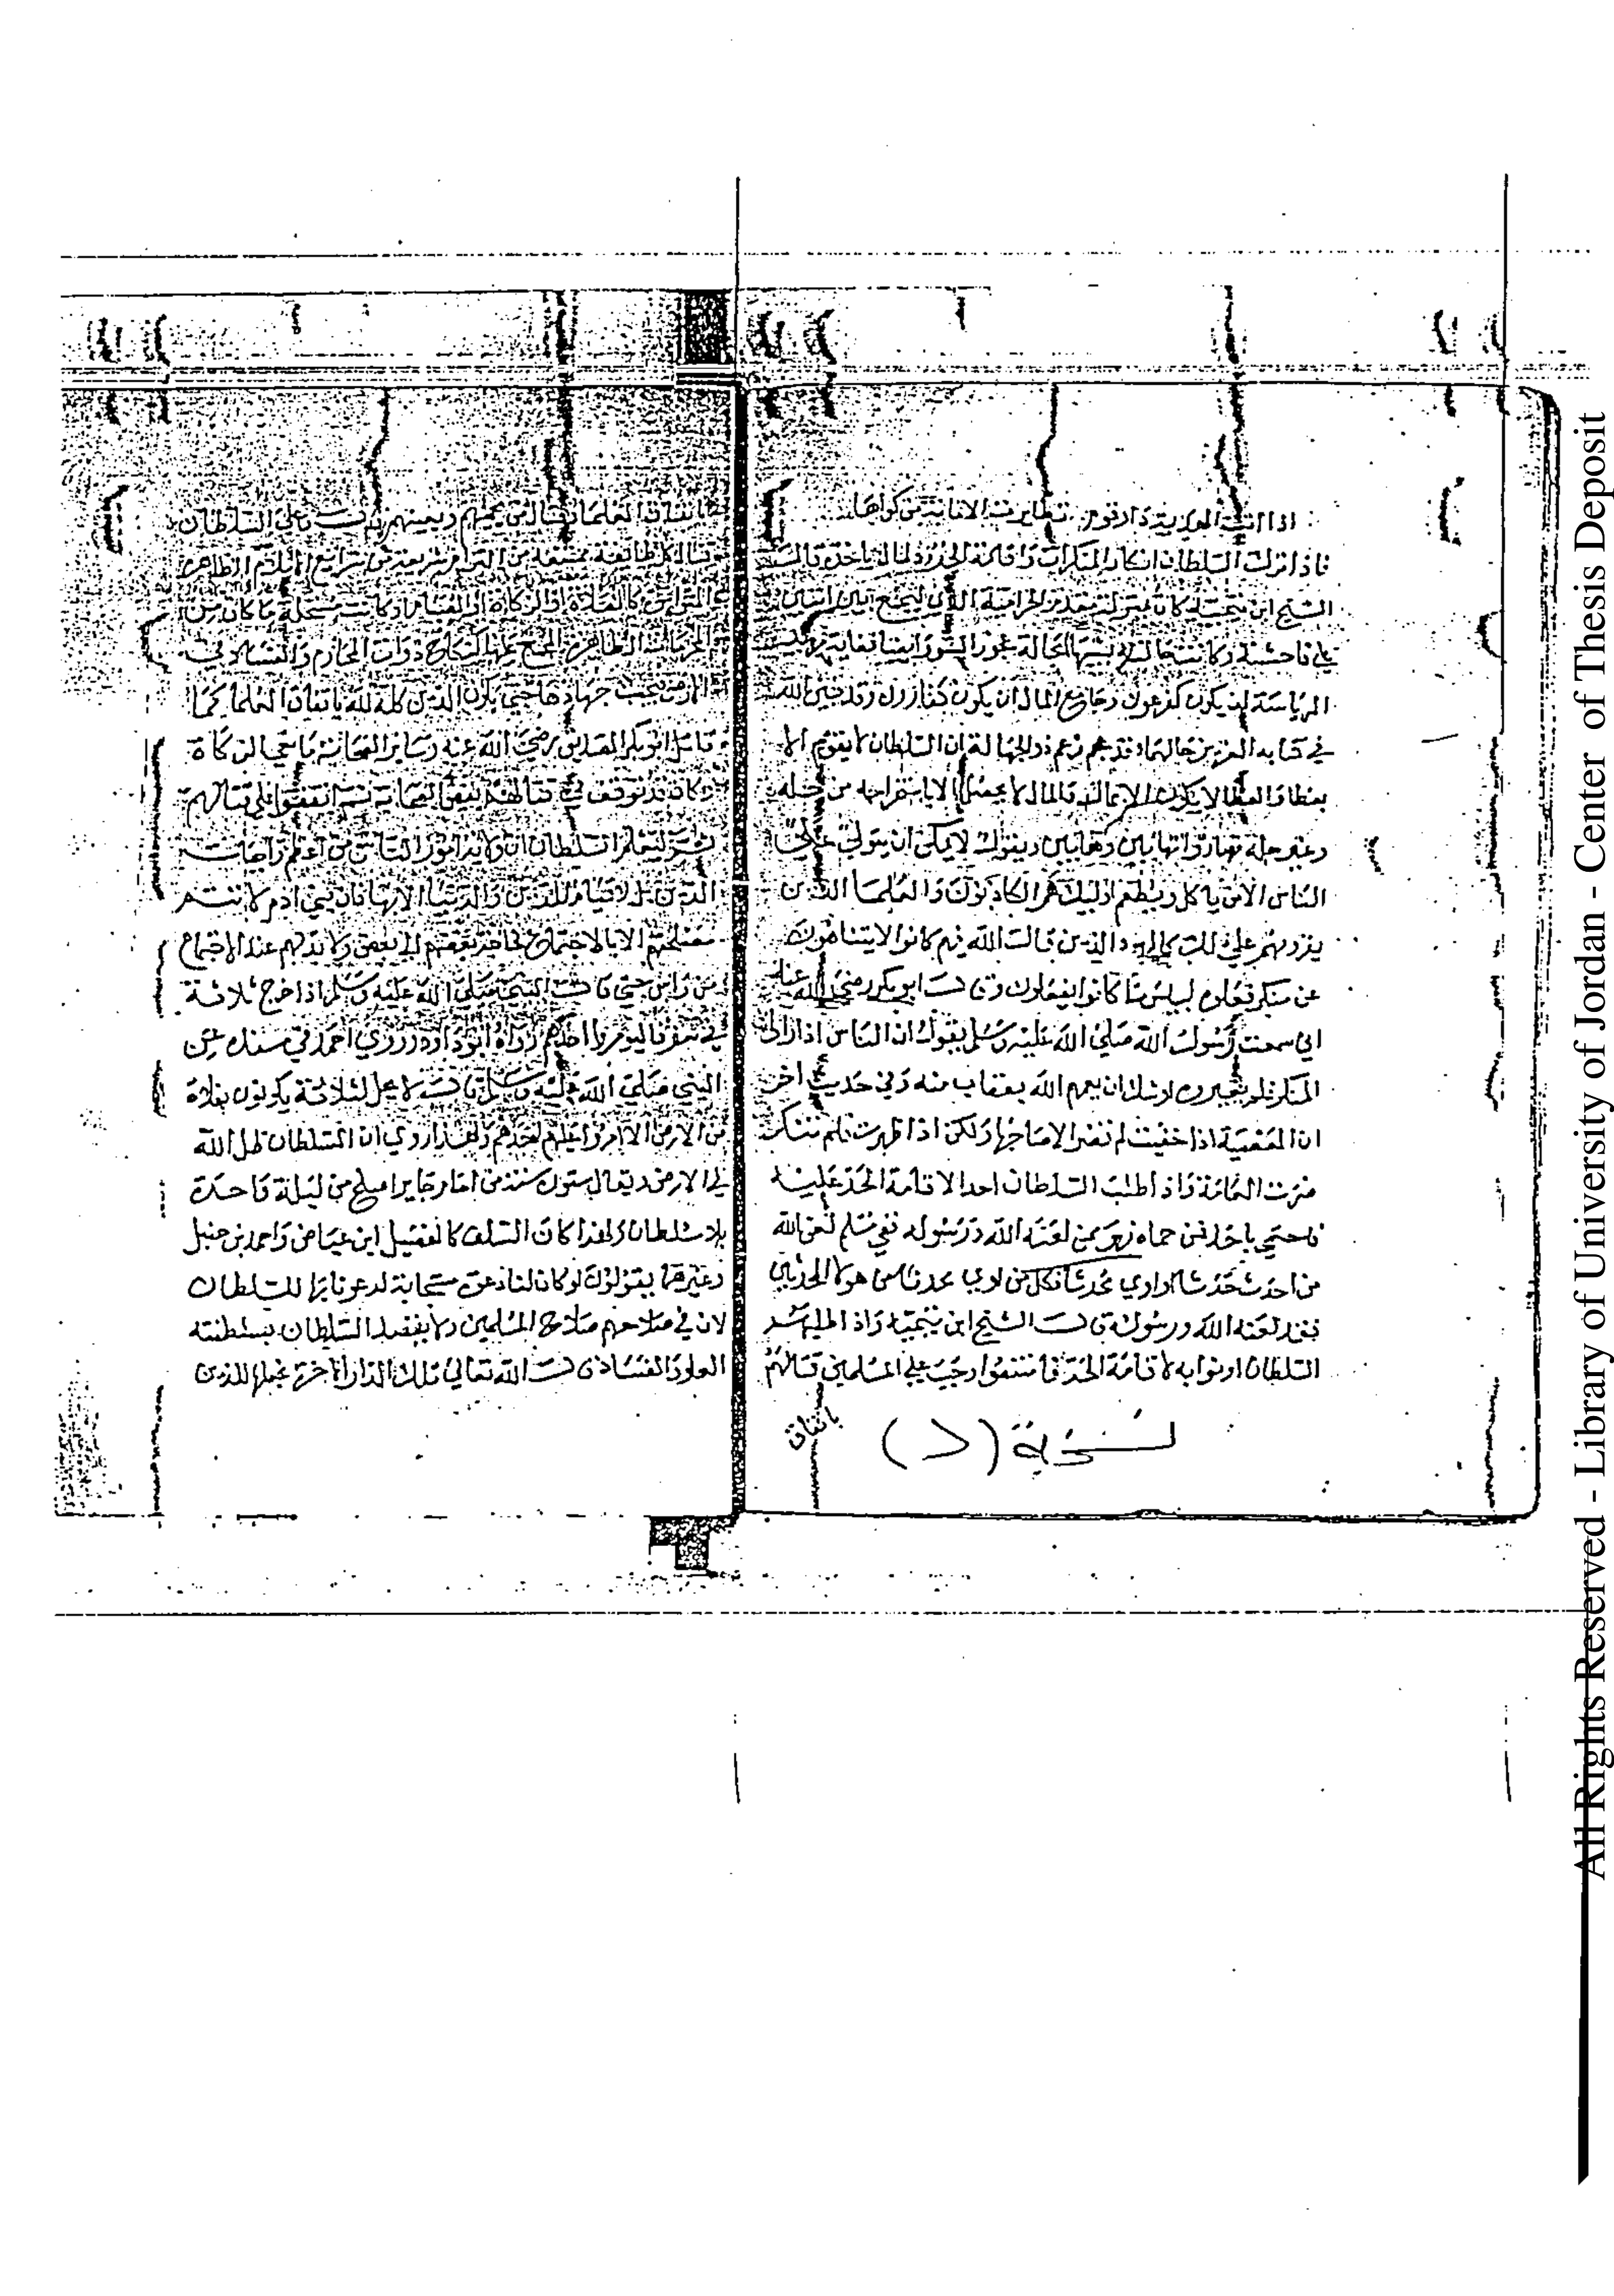 اذا اتت الهدية دار قوم تطايرت الامانة من كواها
فاذا ترك السلطان انكار المنكرات واقامة الحدود لمال ياخذه قال
الشيخ ابن تيمية كان بمنزلة مقدم الحرامية الذي ليجمع بين اثنين
علي فاحشة وكانت حاله شبيها بحالة عجوز السوء ايضا فغاية مريد
الرياسة ان يكون كفرعون وجامع المال ان يكون كقارون وقد بين الله
في كتابه العزيز حالهما وقد عم زعم ذو الجهالة ان السلطان لا يقوم الا
بعطا والعطا لا يكون الا بمال والمال لا يحصل الا باستخراجه من حله
وغير حله نهابين وهابين ويقول لا يمكن ان يتولي علي
الناس الا من ياكل ويطعم اوليك هم الكاذبون والعلما الذين
يقرونهم علي ذلك كاليهود الذين قال الله فيهم كانوا لا يتناهون
عن منكر فعلوه لبيس ما كانوا يفعلون وقال ابو بكر رضي الله عنه
اني سمعت رسول الله صلي الله عليه وسلم يقول ان الناس اذا راوا
المنكر فلم يغيروه اوشك ان يعمهم الله بعقاب منه وفي حديث اخر
ان المعصية اذا خفيت لم تضر الا صاحبها ولكن اذا ظهرت فلم تنكر
ضرت العامة واذا طلب السلطان احدا لاقامة الحد عليه
فاحتمي باحد فمن حماه فهو ممن لعنه الله ورسوله ففي مسلم لعن الله
من احدث حدثا او اوي محدثا فكل من اوي محدثا من هولا المحدثين
فقد لعنه الله ورسوله قال الشيخ ابن تيمية واذا طلبهم
السلطان او نوابه لاقامة الحد فامتنعوا وجب علي المسلمين قتالهم
باتفاق
نسخة (د)
باتفاق العلما وقتال من يحميهم ويعينهم قال وعلي السلطان
قتال كل طايفة ممتنعة من التزام شريعة من شرايع الاسلام الظاهرة
كالصلاة او الزكاة او الصيام او كانت مستحلة ما كان من
المحرمات الظاهرة المجمع عليها كنكاح ذوات المحارم والفساد في
الارض يجب جهادها حتي يكون الدين كله لله باتفاق العلما كما
قاتل ابو بكر الصديق رضي الله عنه وساير الصحابة مانعي الزكاة
وكان قد توقف في قتالهم بعض الصحابة ثم اتفقوا علي قتالهم
ثم ليعلم السلطان ان ولاية امور الناس من اعظم واجبات
الدين بل لا قيام للدين والدنيا الا بها فان بني ادم لا تتم
مصلحتهم الا بالاجتماع لحاجة بعضهم الي بعض ولا بد لهم عند الاجتماع
من راس حتي قال النبي صلي الله عليه وسلم اذا خرج ثلاثة
في سفر فاليومروا احدهم رواه ابو داود وروي احمد في مسنده عن
النبي صلي الله عليه وسلم قال لا يحل لثلاثة يكونون بفلاة
من الارض الا امروا عليهم احدهم ولهذا روي ان السلطان ظل الله
في الارض ويقال ستون سنة من امام جاير اصلح من ليلة واحدة
بلا سلطان ولهذا كان السلف كالفضيل ابن عياض واحمد بن حنبل
وغيرهما يقولون لو كان لنا دعوة مستجابة لدعونا بها للسلطان
لان في صلاحهم صلاح المسلمين ولا يقصد السلطان بسلطنته
العلو والفساد قال الله تعالي تلك الدار الاخرة نجعلها للذين
All Rights Reserved - Library of University of Jordan - Center of Thesis Deposit